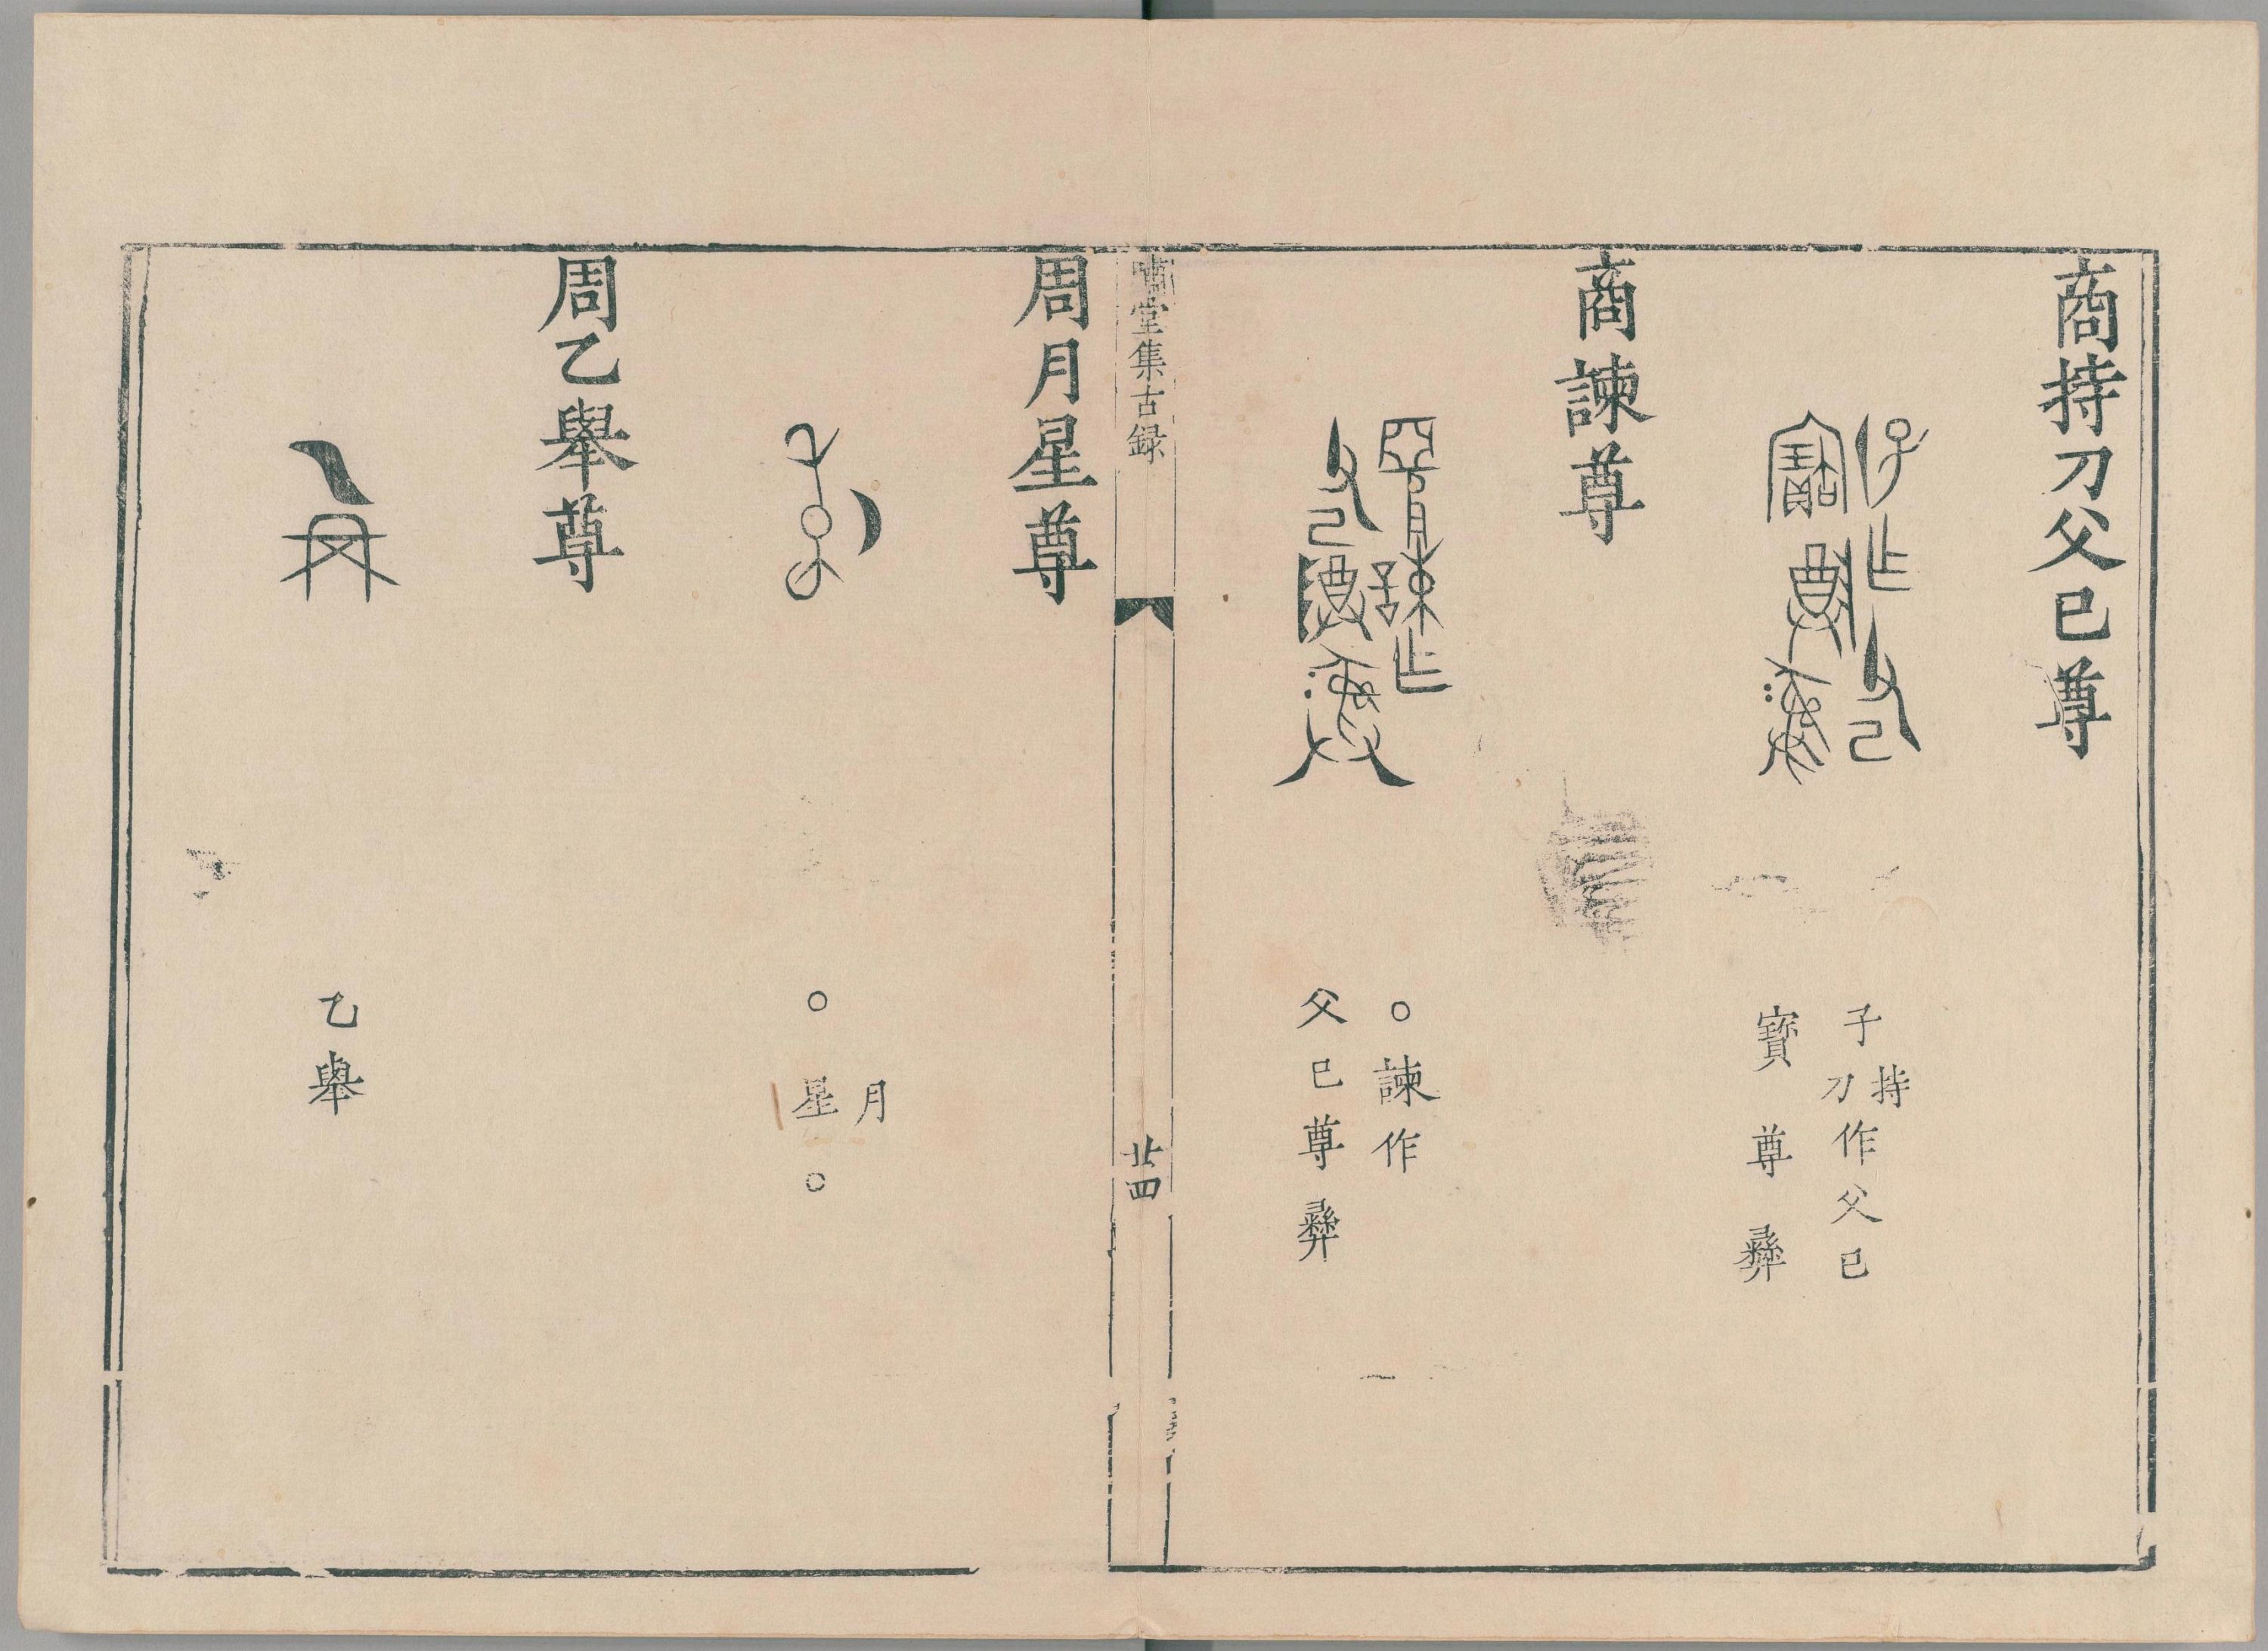 商持刀父巳尊
子持刀作父巳
寶尊彝
商諫尊
○諫作
父巳尊彝
嘯堂集古録
廿四
周月星尊
月
○星○
周乙舉尊
乙舉